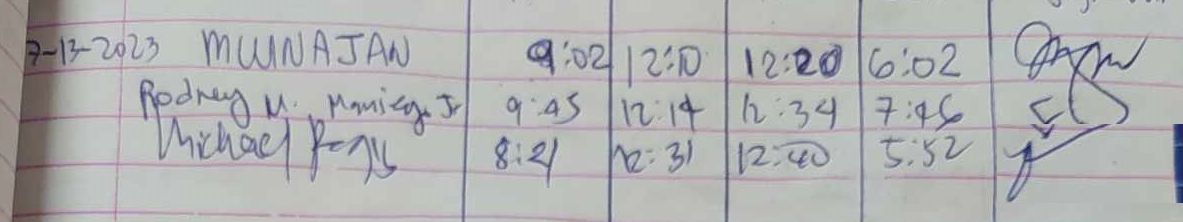 7-13-2023 MWINAJAN 9:02 12:10 12:20 6:02
Rodney M. Jr 9:45 12:14 12:34 7:46
Michael 8:21 12:31 12:40 5:52